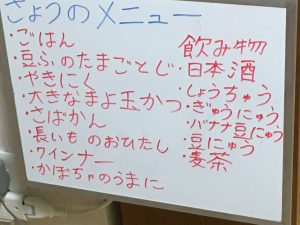 きょうのメニュー
・ごはん
・豆ふのたまごとじ
・やきにく
・大きなまよ玉かつ
・さばかん
・長いものおひたし
・ワインナー
・かぼちゃのうまに
飲み物
・日本酒
・しょうちゅう
・ぎゅうにゅう
・バナナ豆にゅう
・豆にゅう
・麦茶